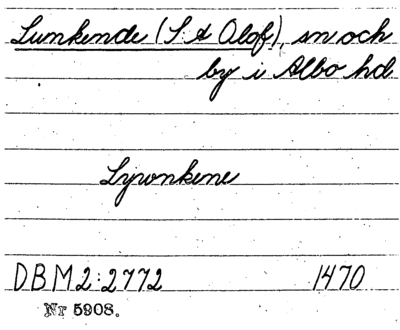 Lunkende (S:t Olof), sn och
by i Albo hd
Lywnkene
DBM2:2772 1470
Nr 5908.